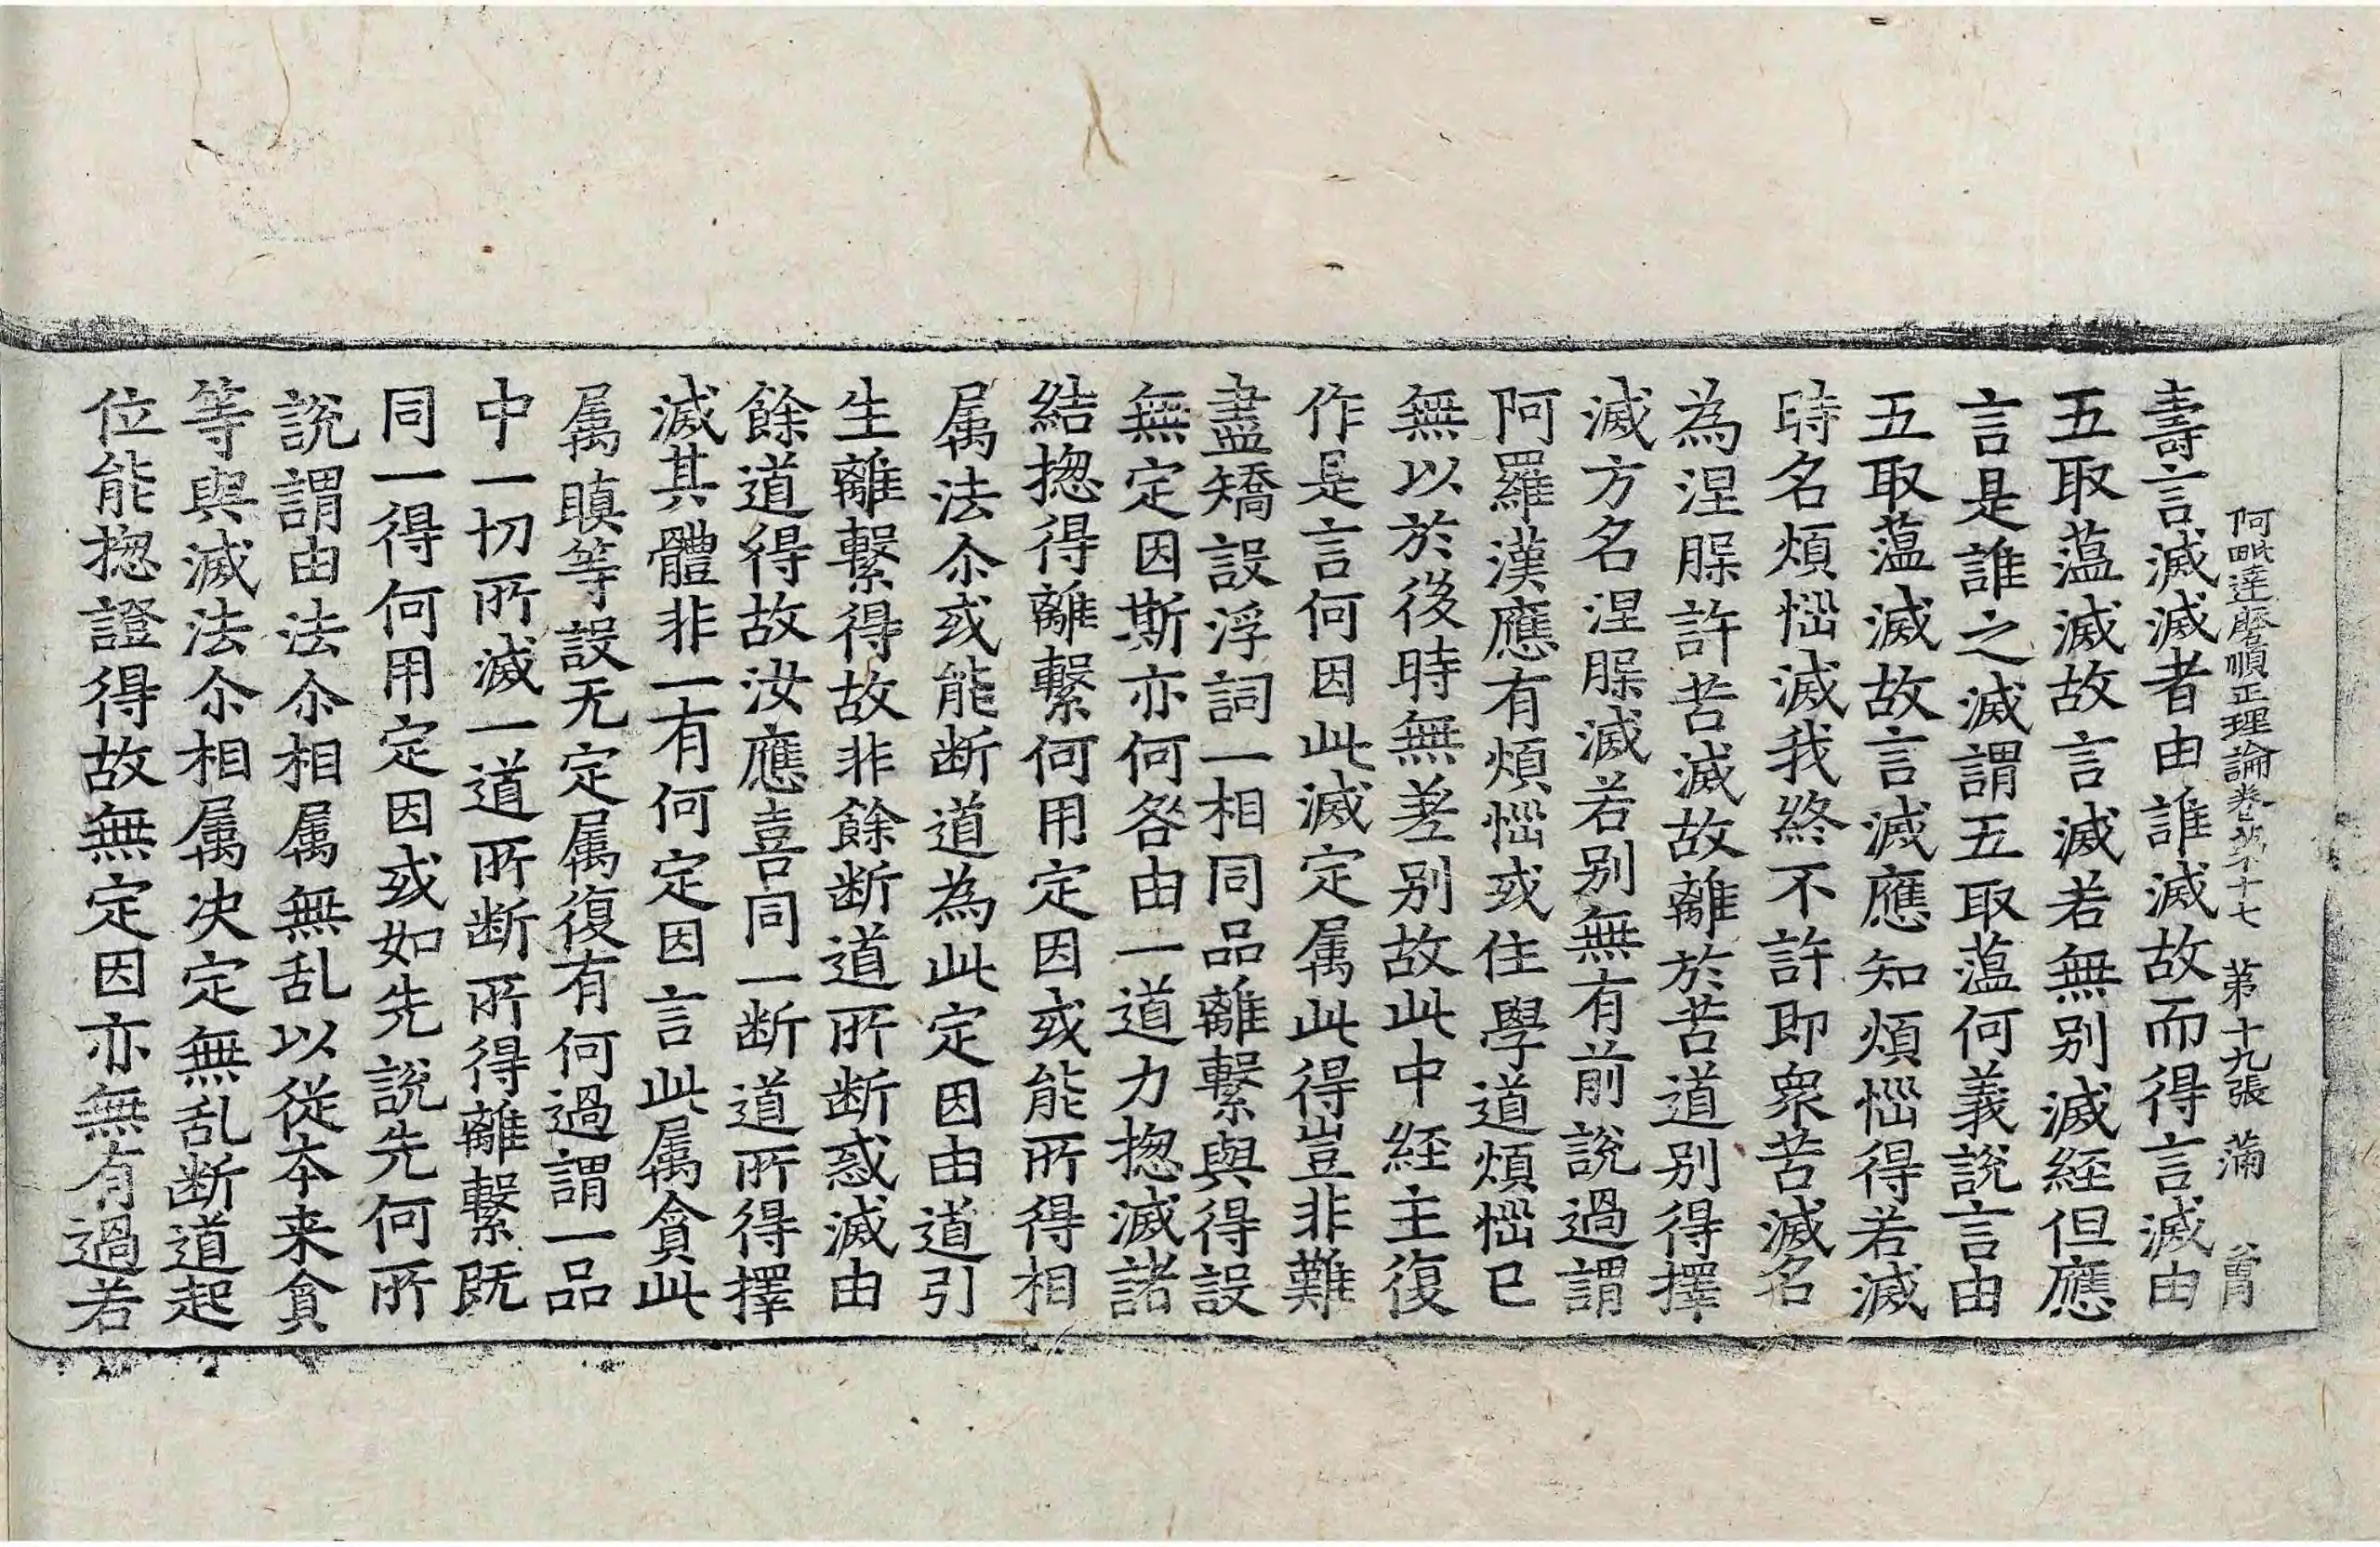 阿毗達磨順正理論卷第十七 第十九張 蒲
壽言滅滅者由誰滅故而得言滅由
五取蕰滅故言滅若無别滅経但應
言是誰之滅謂五取蕰何義說言由
五取蕰滅故言滅應知煩惱得若滅
時名煩惱滅我終不許即衆苦滅名
為涅槃許苦滅故離於苦道别得擇
滅方名涅槃滅若别無有前說過謂
阿羅漢應有煩惱或住學道煩惱已
無以於後時無差别故此中経主復
作是言何因此滅定属此得豈非難
盡矯設浮詞一相同品離繫與得設
無定因斯亦何咎由一道力揔滅諸
結揔得離繫何用定因或能所得相
属法尒或能断道為此定因由道引
生離繫得故非餘断道所断惑滅由
餘道得故汝應喜同一断道所得擇
滅其體非一有何定因言此属貪此
属瞋等設无定属復有何過謂一品
中一切所滅一道所断所得離繫既
同一得何用定因或如先說先何所
說謂由法尒相属無乱以從本来貪
等與滅法尒相属决定無乱断道起
位能揔證得故無定因亦無有過若